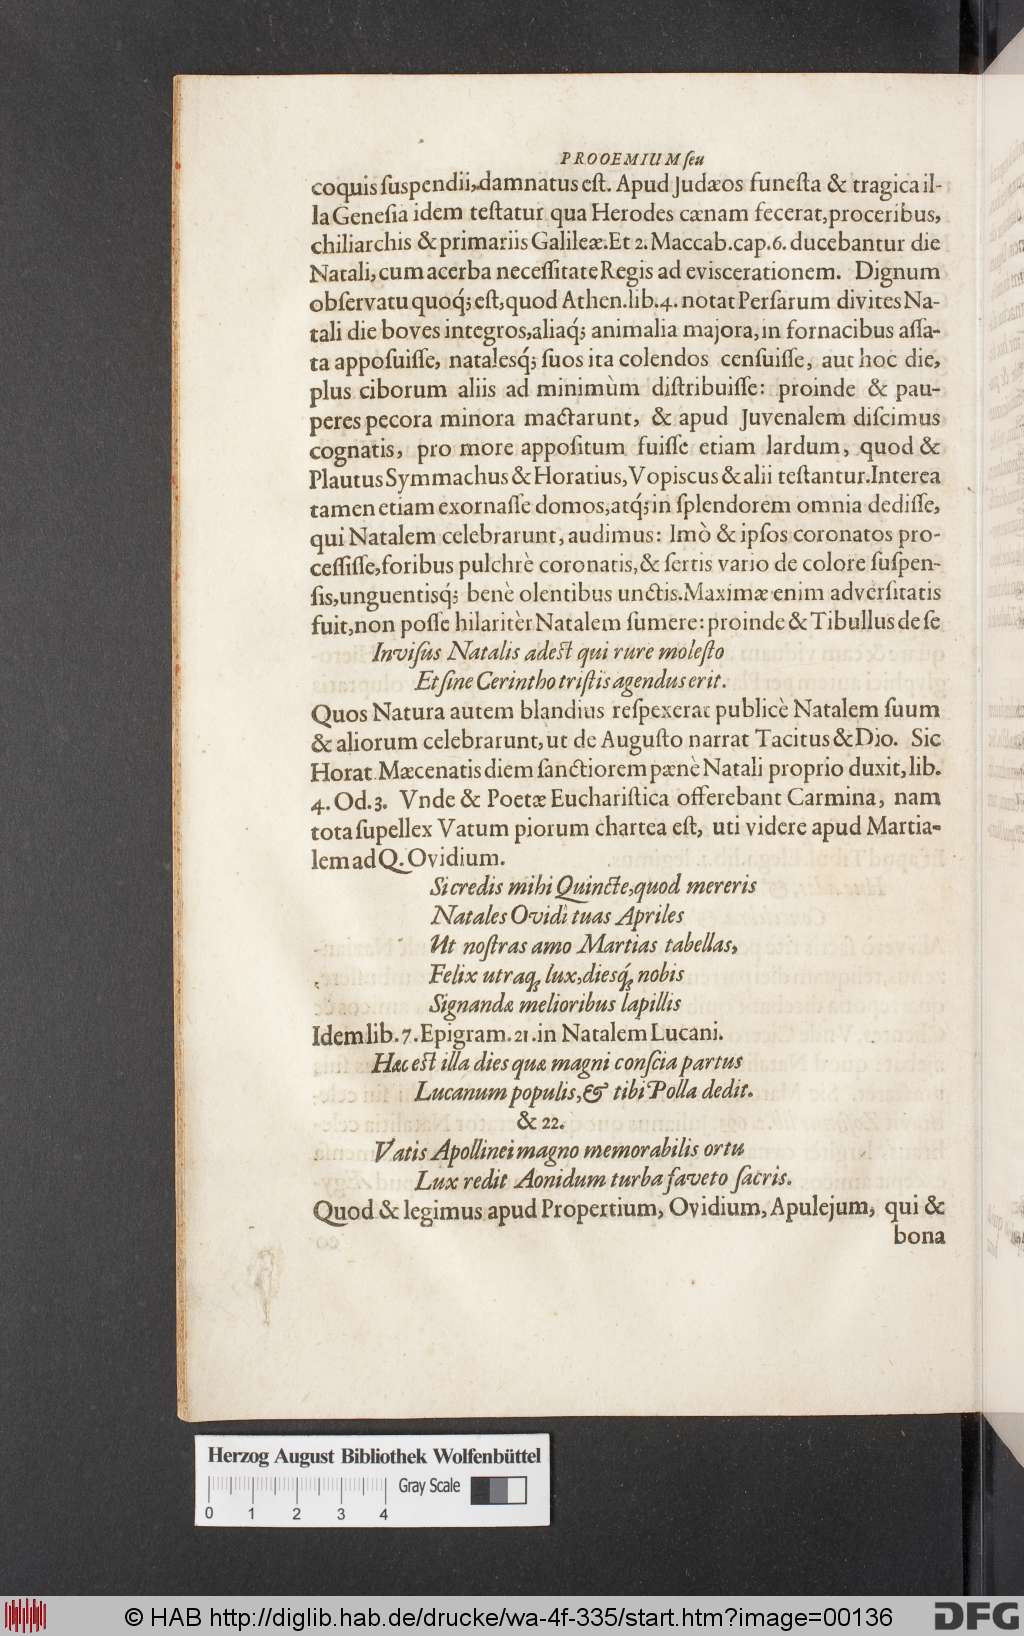 PROOEMIUM ſeu
coquis ſuspendii, damnatus eſt. Apud Judæos funeſta & tragica il-
la Geneſia idem teſtatur qua Herodes cænam fecerat, proceribus,
chiliarchis & primariis Galileæ. Et 2. Maccab. cap. 6. ducebantur die
Natali, cum acerba neceſſitate Regis ad eviscerationem. Dignum
obſervatu quoq́; eſt, quod Athen. lib. 4. notat Perſarum divites Na-
tali die boves integros, aliaq́; animalia majora, in fornacibus aſſa-
ta appoſuiſſe, natalesq́; ſuos ita colendos cenſuiſſe, aut hoc die,
plus ciborum aliis ad minimùm diſtribuiſſe: proinde & pau-
peres pecora minora mactarunt, & apud Juvenalem diſcimus
cognatis, pro more appoſitum fuiſſe etiam lardum, quod &
Plautus Symmachus & Horatius, Vopiscus & alii teſtantur. Interea
tamen etiam exornaſſe domos, atq́; in ſplendorem omnia dediſſe,
qui Natalem celebrarunt, audimus: Imò & ipſos coronatos pro-
ceſſiſſe, foribus pulchrè coronatis, & ſertis vario de colore ſuſpen-
ſis, unguentisq́; benè olentibus unctis. Maximæ enim adverſitatis
fuit, non poſſe hilaritèr Natalem ſumere: proinde & Tibullus de ſe
Inviſus Natalis adeſt qui rure moleſto
Et ſine Cerintho triſtis agendus erit.
Quos Natura autem blandius reſpexerat publicè Natalem ſuum
& aliorum celebrarunt, ut de Auguſto narrat Tacitus & Dio. Sic
Horat. Mæcenatis diem ſanctiorem pænè Natali proprio duxit, lib.
4. Od. 3. Vnde & Poetæ Euchariſtica offerebant Carmina, nam
tota ſupellex Vatum piorum chartea eſt, uti videre apud Martia-
lem ad Q. Ovidium.
Si credis mihi Quincte, quod mereris
Natales Ovidî tuas Apriles
Ut noſtras amo Martias tabellas,
Felix utraq; lux, diesq́; nobis
Signandæ melioribus lapillis
Idem lib. 7. Epigram. 21. in Natalem Lucani.
Hæc eſt illa dies quæ magni conſcia partus
Lucanum populis, & tibi Polla dedit.
& 22.
Vatis Apollinei magno memorabilis ortu
Lux redit Aonidum turba faveto ſacris.
Quod & legimus apud Propertium, Ovidium, Apulejum, qui &
bona
Herzog August Bibliothek Wolfenbüttel
Gray Scale
0 1 2 3 4
© HAB http://diglib.hab.de/drucke/wa-4f-335/start.htm?image=00136
DFG